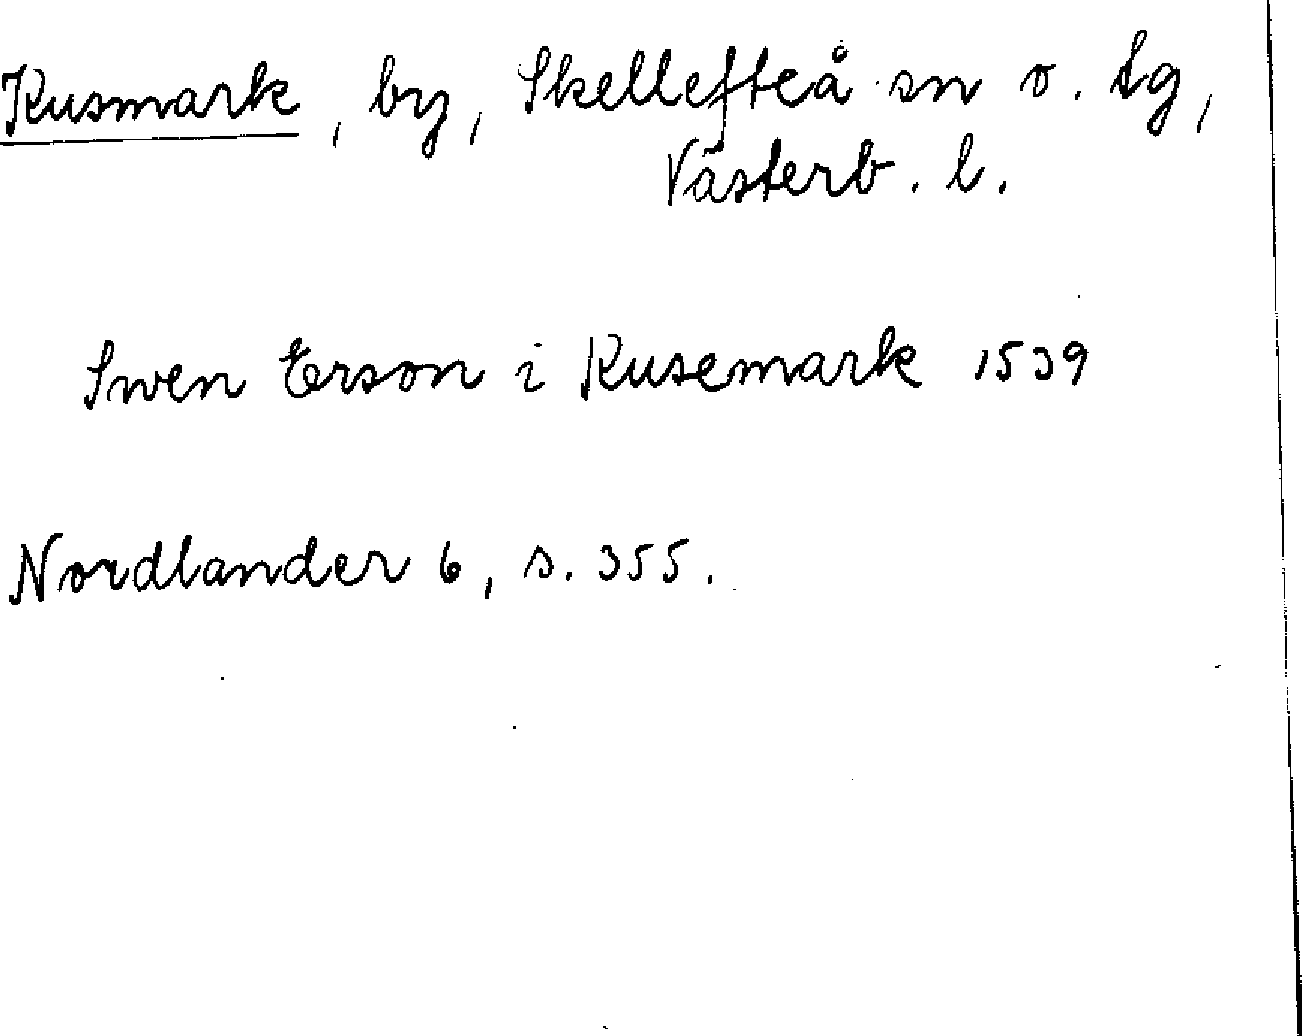 Kusmark, by, Skellefteå sn o. tg,
Västerb. l.
Swen Erson i Kusemark 1539
Nordlander 6, s. 355.